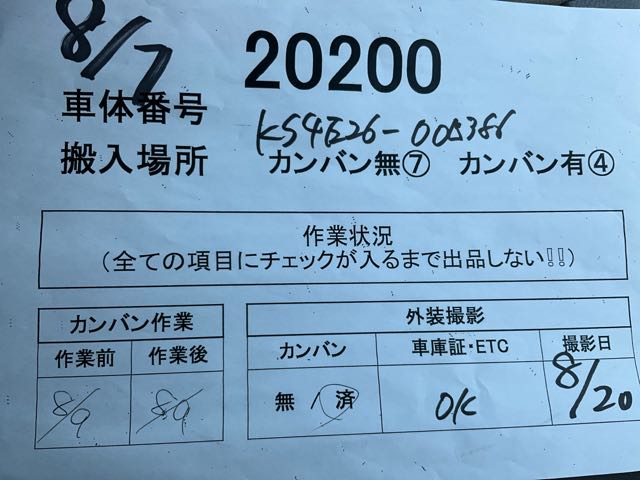 8/7
20200
車体番号 KS4E26-005386
搬入場所 カンバン無⑦ カンバン有④
作業状況
(全ての項目にチェックが入るまで出品しない!!)
カンバン作業
作業前 作業後
8/9 8/9
外装撮影
カンバン 車庫証・ETC 撮影日
無 / 済 OK 8/20